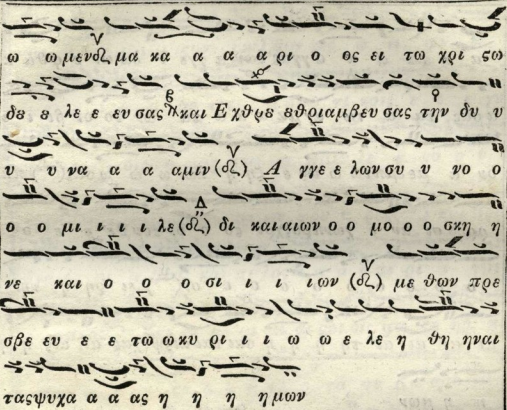 ω ω μενȣ μα κα α α α ρι ο ος ει τω χρι ϛω
δε ε λε ε ευ σας και Ε χθρε εθριαμβευ σας την δυ υ
υ υ να α α αμιν (δι) Α γγε ε λων συ υ νο ο
ο ο μι ι ι ι λε (δι) δι και αιων ο ο μο ο ο σκη η
νε και ο ο ο σι ι ι ιων (δι) με θων πρε
σβε ευ ε ε τω ω κυ ρι ι ι ω ω ε λε η θη ηναι
τας ψυχα α α ας η η η η μων